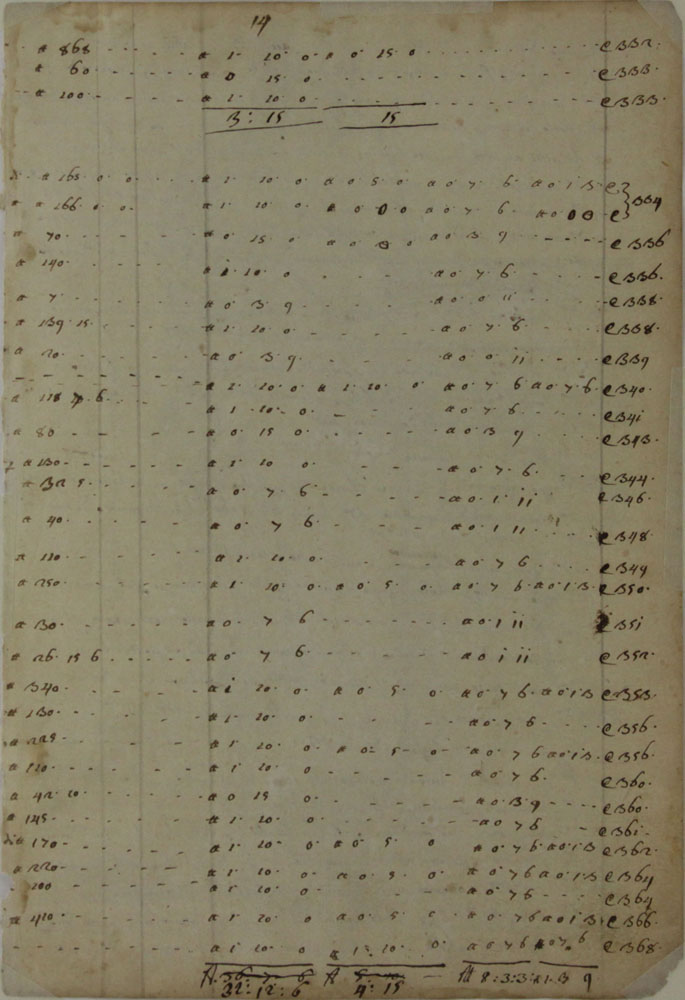 14
a 868 a 1 10 0 a 0 15 0 e332
a 60 a 0 15 0 e333
a 100 a 1 10 0 e333
3:15 15
a 165 0 0 a 1 10 0 a 0 5 0 a 0 7 6 a 0 1 3 e
a 166 0 0 a 1 10 0 a 0 0 0 a 0 7 6 a 0 0 0 e } 334
a 70 a 0 15 0 a 0 0 0 a 0 3 9 e336
a 140 a 1 10 0 a 0 7 6 e336
a 7 a 0 3 9 a 0 0 11 e338
a 139 15 a 1 10 0 a 0 7 6 e338
a 20 a 0 3 9 a 0 0 11 e339
a 1 10 0 a 1 10 0 a 0 7 6 a 0 7 6 e340
a 118 7 6 a 1 10 0 a 0 7 6 e341
a 80 a 0 15 0 a 0 3 9 e343
a 130 a 1 10 0 a 0 7 6 e344
a 32 5 a 0 7 6 a 0 1 11 e346
a 40 a 0 7 6 a 0 1 11 e348
a 110 a 1 10 0 a 0 7 6 e349
a 250 a 1 10 0 a 0 5 0 a 0 7 6 a 0 1 3 e350
a 30 a 0 7 6 a 0 1 11 351
a 26 15 6 a 0 7 6 a 0 1 11 e352
a 340 a 1 10 0 a 0 5 0 a 0 7 6 a 0 1 3 e353
a 130 a 1 10 0 a 0 7 6 e356
a 225 a 1 10 0 a 0 5 0 a 0 7 6 a 0 1 3 e356
a 110 a 1 10 0 a 0 7 6 e360
a 42 10 a 0 15 0 a 0 3 9 e360
a 145 a 1 10 0 a 0 7 6 e361
a 170 a 1 10 0 a 0 5 0 a 0 7 6 a 0 1 3 e362
a 220 a 1 10 0 a 0 5 0 a 0 7 6 a 0 1 3 e364
200 a 1 10 0 a 0 7 6 e364
a 410 a 1 10 0 a 0 5 0 a 0 7 6 a 0 1 3 e366
a 1 10 0 a 1 10 0 a 0 7 6 a 0 7 6 e368
32:12:6 4:15 8:3:3 1 3 9